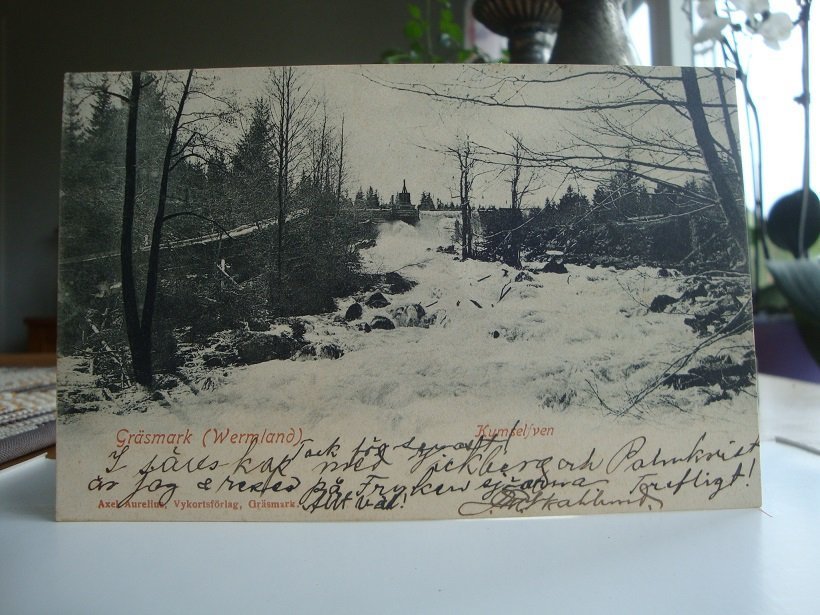 Gräsmark (Wermland)
Kumselfven
Tack för senast!
I sällskap med Zickberg och Palmkvist
är jag å resa på Fryken sjöarna Trefligt!
Allt väl!
Axel Aurelius, Vykortsförlag, Gräsmark.